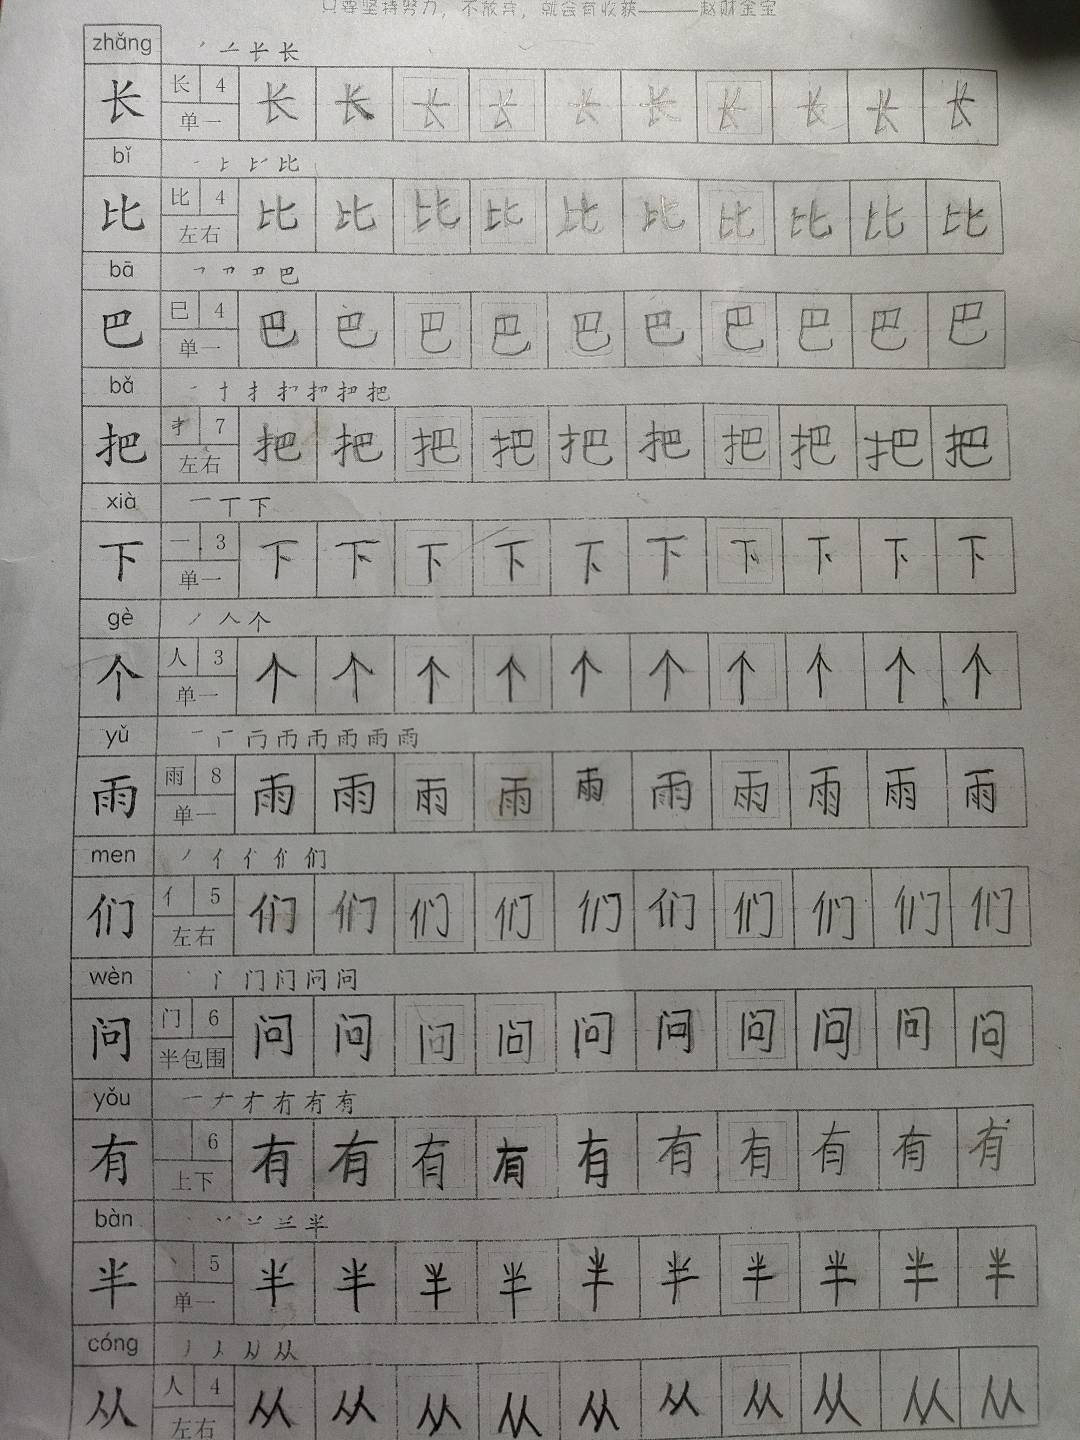 只要坚持努力，不放弃，就会有收获———赵财金宝
zhǎng
长 4 长 长 长 长 长 长 长 长 长 长 长
单一
bǐ
比 比 4 比 比 比 比 比 比 比 比 比 比
左右
bā
巴 巳 4 巴 巴 巴 巴 巴 巴 巴 巴 巴 巴
单一
bǎ
把 扌 7 把 把 把 把 把 把 把 把 把 把
左右
xià 一 丅 下
下 一 3 下 下 下 下 下 下 下 下 下 下
单一
gè 丿 人 个
个 人 3 个 个 个 个 个 个 个 个 个 个
单一
yǔ
雨 雨 8 雨 雨 雨 雨 雨 雨 雨 雨 雨 雨
单一
men
们 亻 5 们 们 们 们 们 们 们 们 们 们
左右
wèn
问 门 6 问 问 问 问 问 问 问 问 问 问
半包围
yǒu
有 6 有 有 有 有 有 有 有 有 有 有
上下
bàn
半 丶 5 半 半 半 半 半 半 半 半 半 半
单一
cóng
从 人 4 从 从 从 从 从 从 从 从 从 从
左右